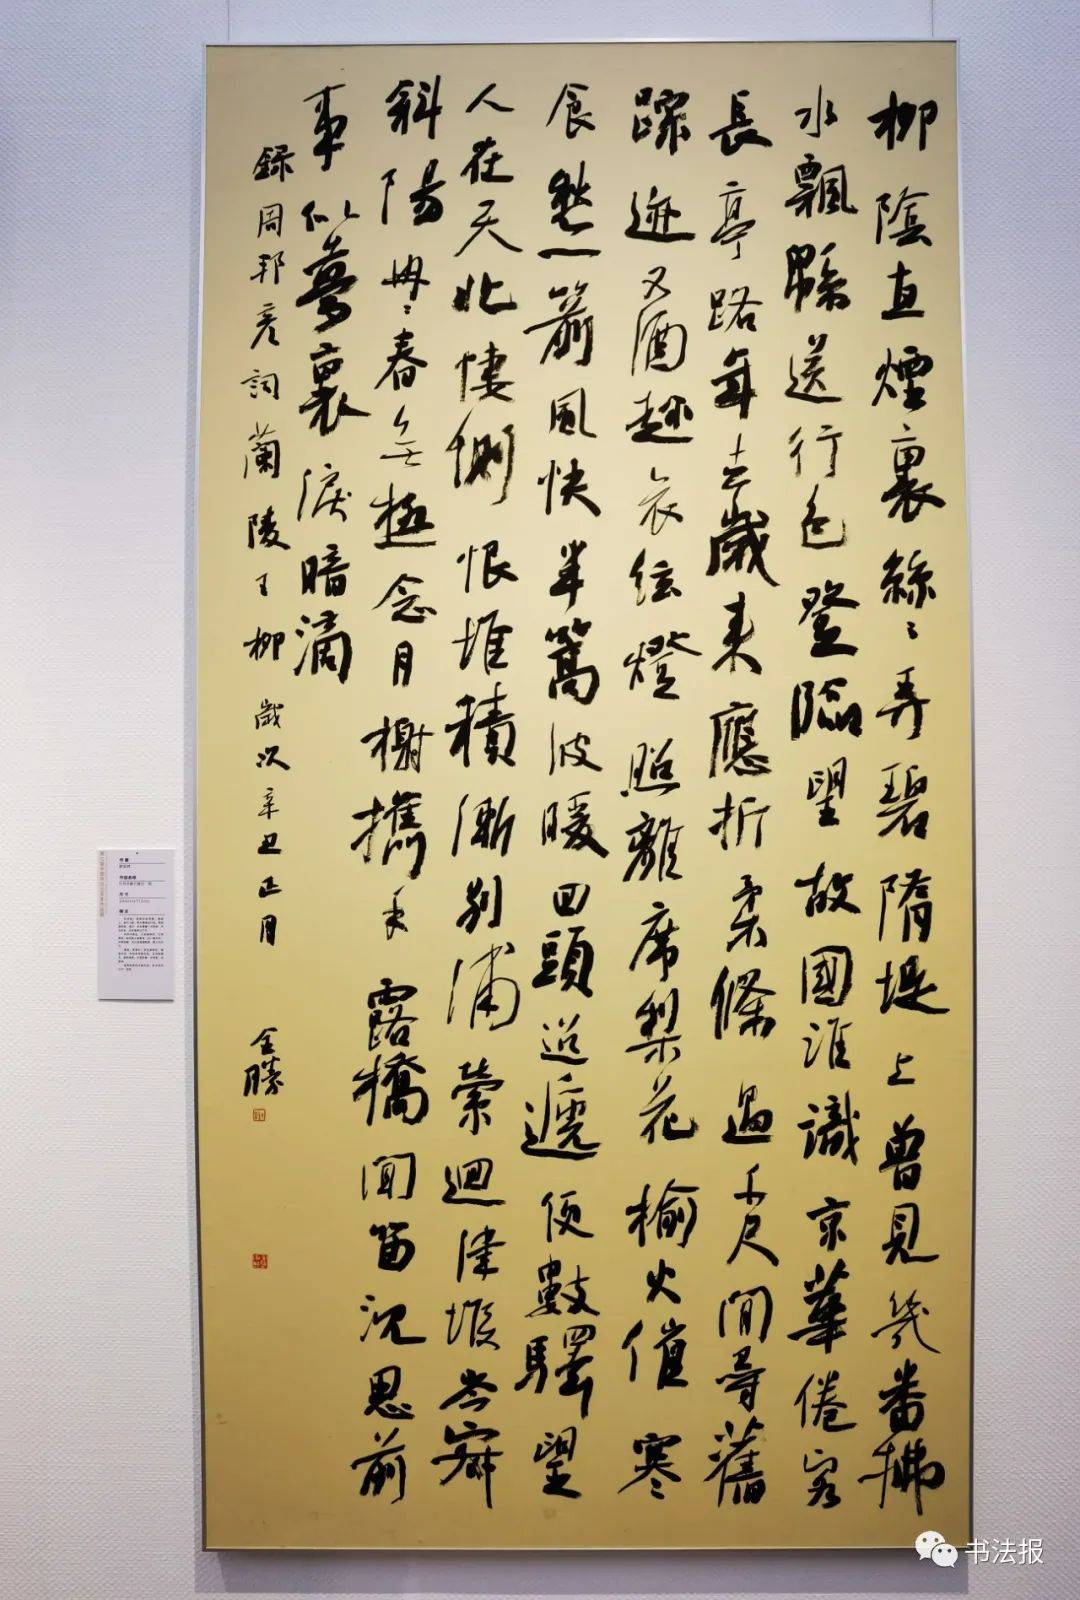 柳陰直煙裏絲〻弄碧隋堤上曾見幾番拂
水飄緜送行色登臨望故國誰識京華倦客
長亭路年去歲來應折柔條過千尺閒尋舊
蹤迹又酒趁哀絃燈照離席梨花榆火催寒
食愁一箭風快半篙波暖回頭迢遞便數驛望
人在天北悽惻恨堆積漸別浦縈迴津堠岑寂
斜陽冉〻春無極念月榭攜手露橋聞笛沉思前
事似夢裏淚暗滴
錄周邦彦詞蘭陵王柳 歲次辛丑正月 全勝
书法报